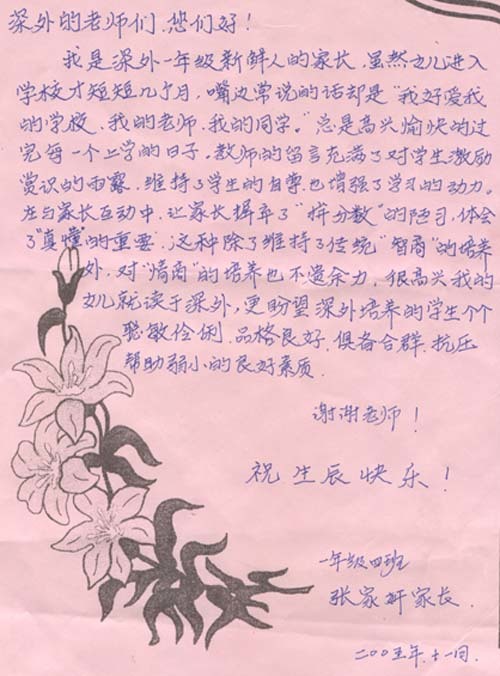 深外的老师们，您们好！
我是深外一年级新鲜人的家长，虽然女儿进入
学校才短短几个月，嘴边常说的话却是“我好爱我
的学校、我的老师、我的同学。”总是高兴愉快的过
完每一个上学的日子。教师的留言充满了对学生激励
赏识的雨露，维持了学生的自尊，也增强了学习的动力。
在与家长互动中，让家长摒弃了“拼分数”的陋习，体会
了“真懂”的重要，这种除了维持了传统“智商”的培养
外，对“情商”的培养也不遗余力，很高兴我的
女儿就读于深外，更盼望深外培养的学生个个
聪敏伶俐、品格良好、俱备合群、抗压
帮助弱小的良好素质．
谢谢老师！
祝生辰快乐！
一年级四班
张家妍家长．
二00五年．十一日．